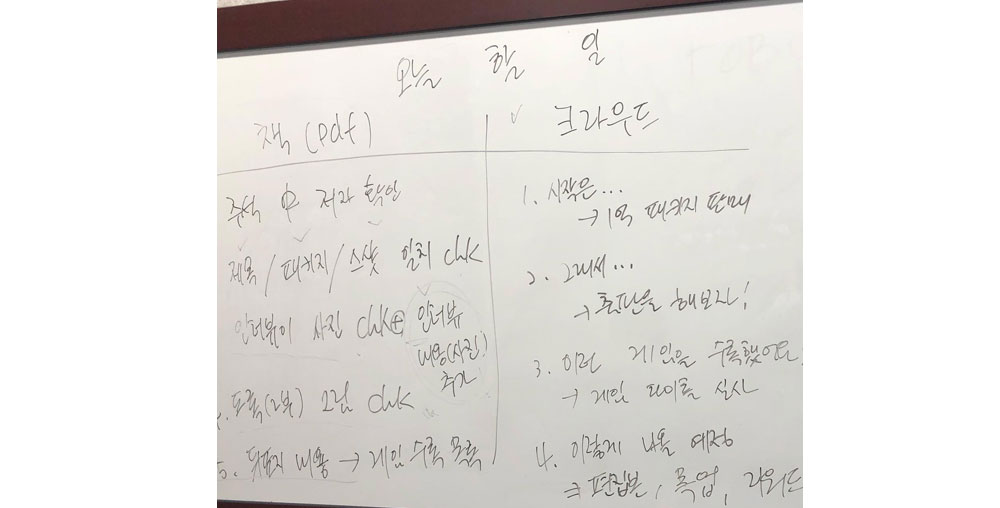 오늘 할 일
책 (pdf)
주석 中 저자 확인
제목 / 패키지 / 스샷 일치 chk
인터뷰이 사진 chk + 인터뷰
내용(사진)
추가
도록(2부) 그림 chk
5. 뒤표지 내용 → 게임 수록 목록
크라우드
1. 시작은...
→ 1억 패키지 판매
2. 그래서...
→ 출판을 해보자!
3. 이런 게임을 수록했어요.
→ 게임 타이틀 실사
4. 이렇게 나올 예정
⇒ 편집본, 목업, 리워드